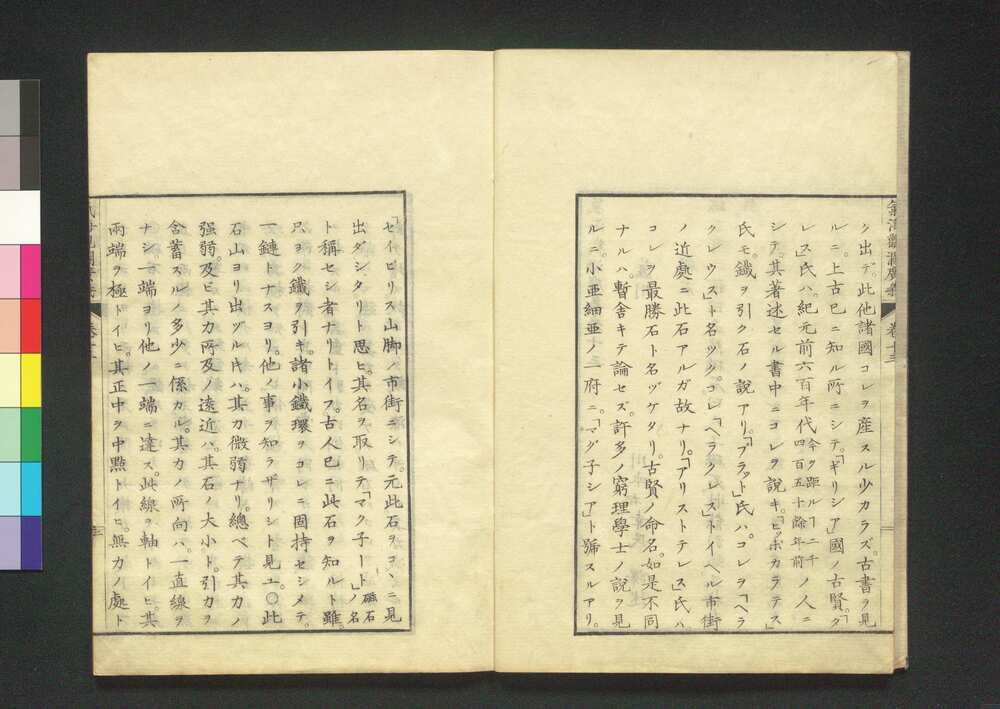 ク出デ。此他諸國コレヲ産スル少カラズ。古書ヲ見
ルニ。上古已ニ知ル所ニシテ。「ギリシア」國ノ古賢。「タ
レス」氏ハ。紀元前六百年代今ヲ距ルヿ二千四百五十餘年前ノ人ニ
シテ。其著述セル書中ニコレヲ說キ。「ヒッポカラテス」
氏モ。鐵ヲ引ク石ノ說アリ。「プラット」氏ハ。コレヲ「ヘラ
クレウス」ト名ヅク。コレ「ヘラクレス」トイヘル市街
ノ近處ニ此石アルガ故ナリ。「アリストテレス」氏ハ。
コレヲ最勝石ト名ヅケタリ。古賢ノ命名。如是不同
ナルハ暫舍キテ論セズ。許多ノ窮理學士ノ說ヲ見
ルニ。小亜細亜ノ一府ニ。「マグ子シア」ト號スルアリ。
氣海觀瀾廣義 卷十三
「セイピリス山脚ノ市街ニシテ。元此石ヲコヽニ見
出ダシタリト思ヒ。其名ヲ取リテ「マク子ート」磁石ノ名
ト稱セシ者ナリトイフ。古人已ニ此石ヲ知ルト雖。
只ヨク鐵ヲ引キ。諸小鐵環ヲコレニ固持セシメテ。
一鏈トナスヨリ。他ノ事ヲ知ラザリシト見ユ。〇此
石山ヨリ出ヅル片ハ。其力微弱ナリ。總ベテ其力ノ
强弱。及ビ其力所及ノ遠近ハ。其石ノ大小ト。引力ヲ
含蓄スルノ多少ニ係カル。其力ノ所向ハ。一直線ヲ
ナシ。一端ヨリ他ノ一端ニ達ス。此線ヲ軸トイヒ。其
兩端ヲ極トイヒ。其正中ヲ中點トイヒ。無力ノ處ト